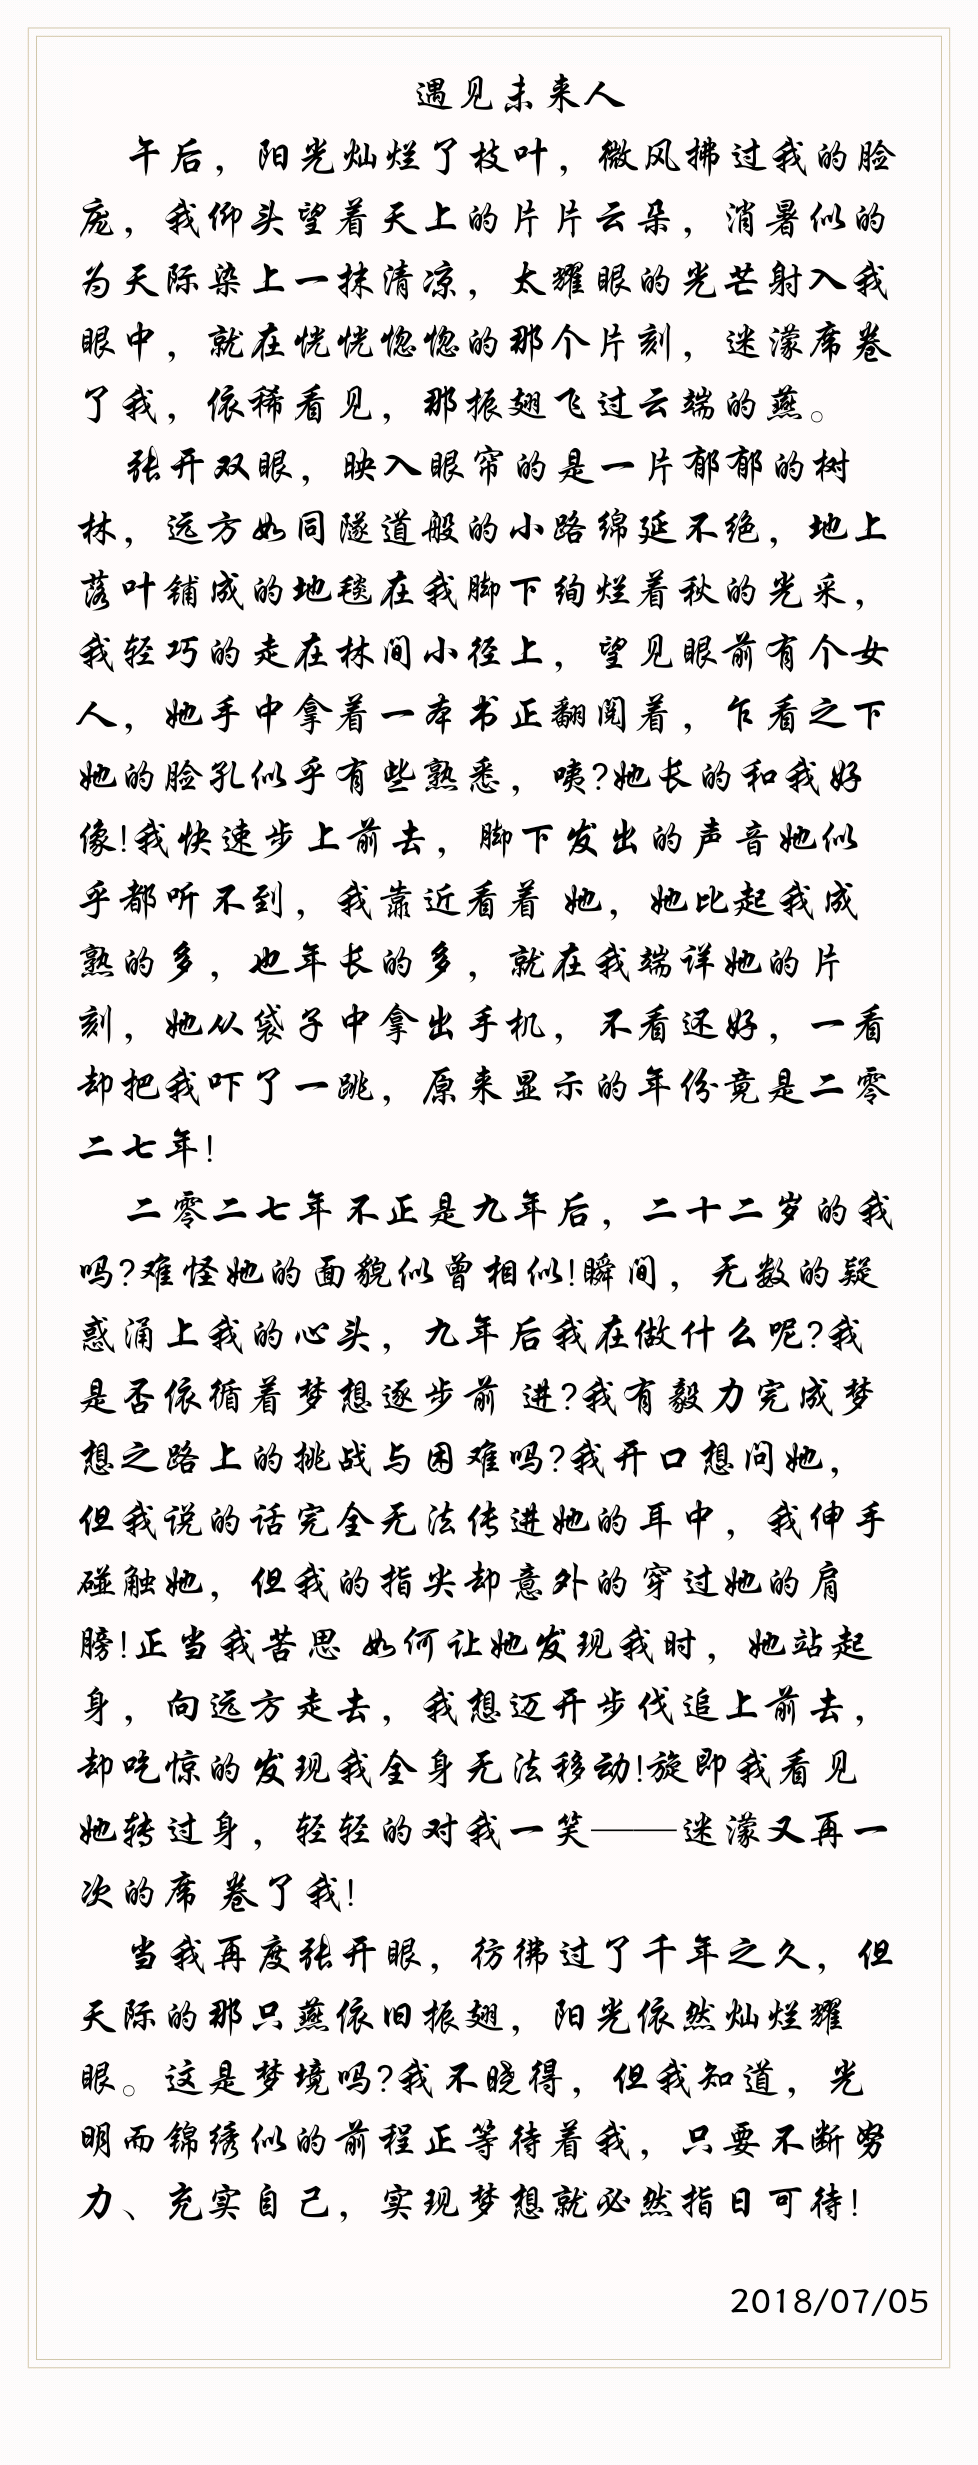 遇见未来人
午后，阳光灿烂了枝叶，微风拂过我的脸
庞，我仰头望着天上的片片云朵，消暑似的
为天际染上一抹清凉，太耀眼的光芒射入我
眼中，就在恍恍惚惚的那个片刻，迷濛席卷
了我，依稀看见，那振翅飞过云端的燕。
张开双眼，映入眼帘的是一片郁郁的树
林，远方如同隧道般的小路绵延不绝，地上
落叶铺成的地毯在我脚下绚烂着秋的光采，
我轻巧的走在林间小径上，望见眼前有个女
人，她手中拿着一本书正翻阅着，乍看之下
她的脸孔似乎有些熟悉，咦?她长的和我好
像!我快速步上前去，脚下发出的声音她似
乎都听不到，我靠近看着 她，她比起我成
熟的多，也年长的多，就在我端详她的片
刻，她从袋子中拿出手机，不看还好，一看
却把我吓了一跳，原来显示的年份竟是二零
二七年!
二零二七年不正是九年后，二十二岁的我
吗?难怪她的面貌似曾相似!瞬间，无数的疑
惑涌上我的心头，九年后我在做什么呢?我
是否依循着梦想逐步前 进?我有毅力完成梦
想之路上的挑战与困难吗?我开口想问她，
但我说的话完全无法传进她的耳中，我伸手
碰触她，但我的指尖却意外的穿过她的肩
膀!正当我苦思 如何让她发现我时，她站起
身，向远方走去，我想迈开步伐追上前去，
却吃惊的发现我全身无法移动!旋即我看见
她转过身，轻轻的对我一笑——迷濛又再一
次的席 卷了我!
当我再度张开眼，彷彿过了千年之久，但
天际的那只燕依旧振翅，阳光依然灿烂耀
眼。这是梦境吗?我不晓得，但我知道，光
明而锦绣似的前程正等待着我，只要不断努
力、充实自己，实现梦想就必然指日可待!
2018/07/05